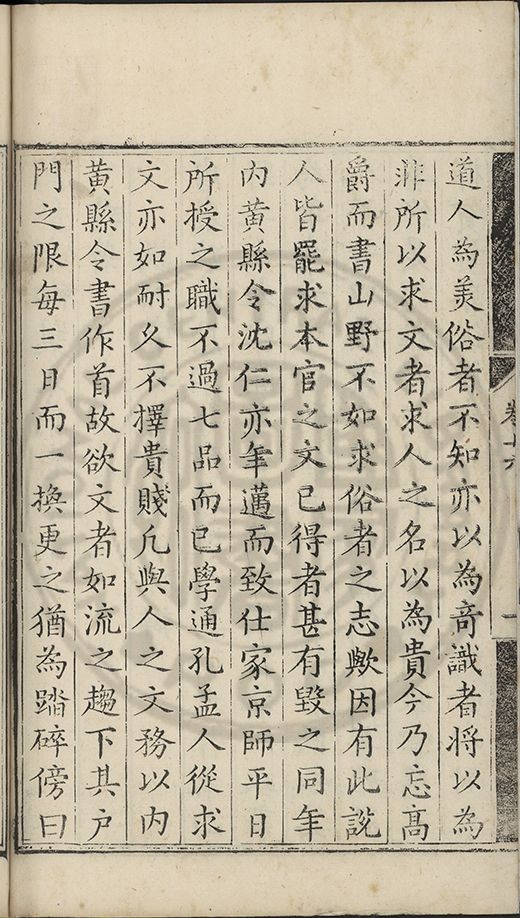 卷十六
一
道人為美俗者不知亦以為竒識者將以為
非所以求文者求人之名以為貴今乃忘髙
爵而書山野不如求俗者之志歟因有此說
人皆罷求本官之文已得者甚有毀之同年
内黃縣令沈仁亦年邁而致仕家京師平日
所授之職不過七品而已學通孔孟人從求
文亦如耐久不擇貴賤凢與人之文務以内
黃縣令書作首故欲文者如流之趨下其户
門之限每三日而一換更之猶為踏碎傍曰